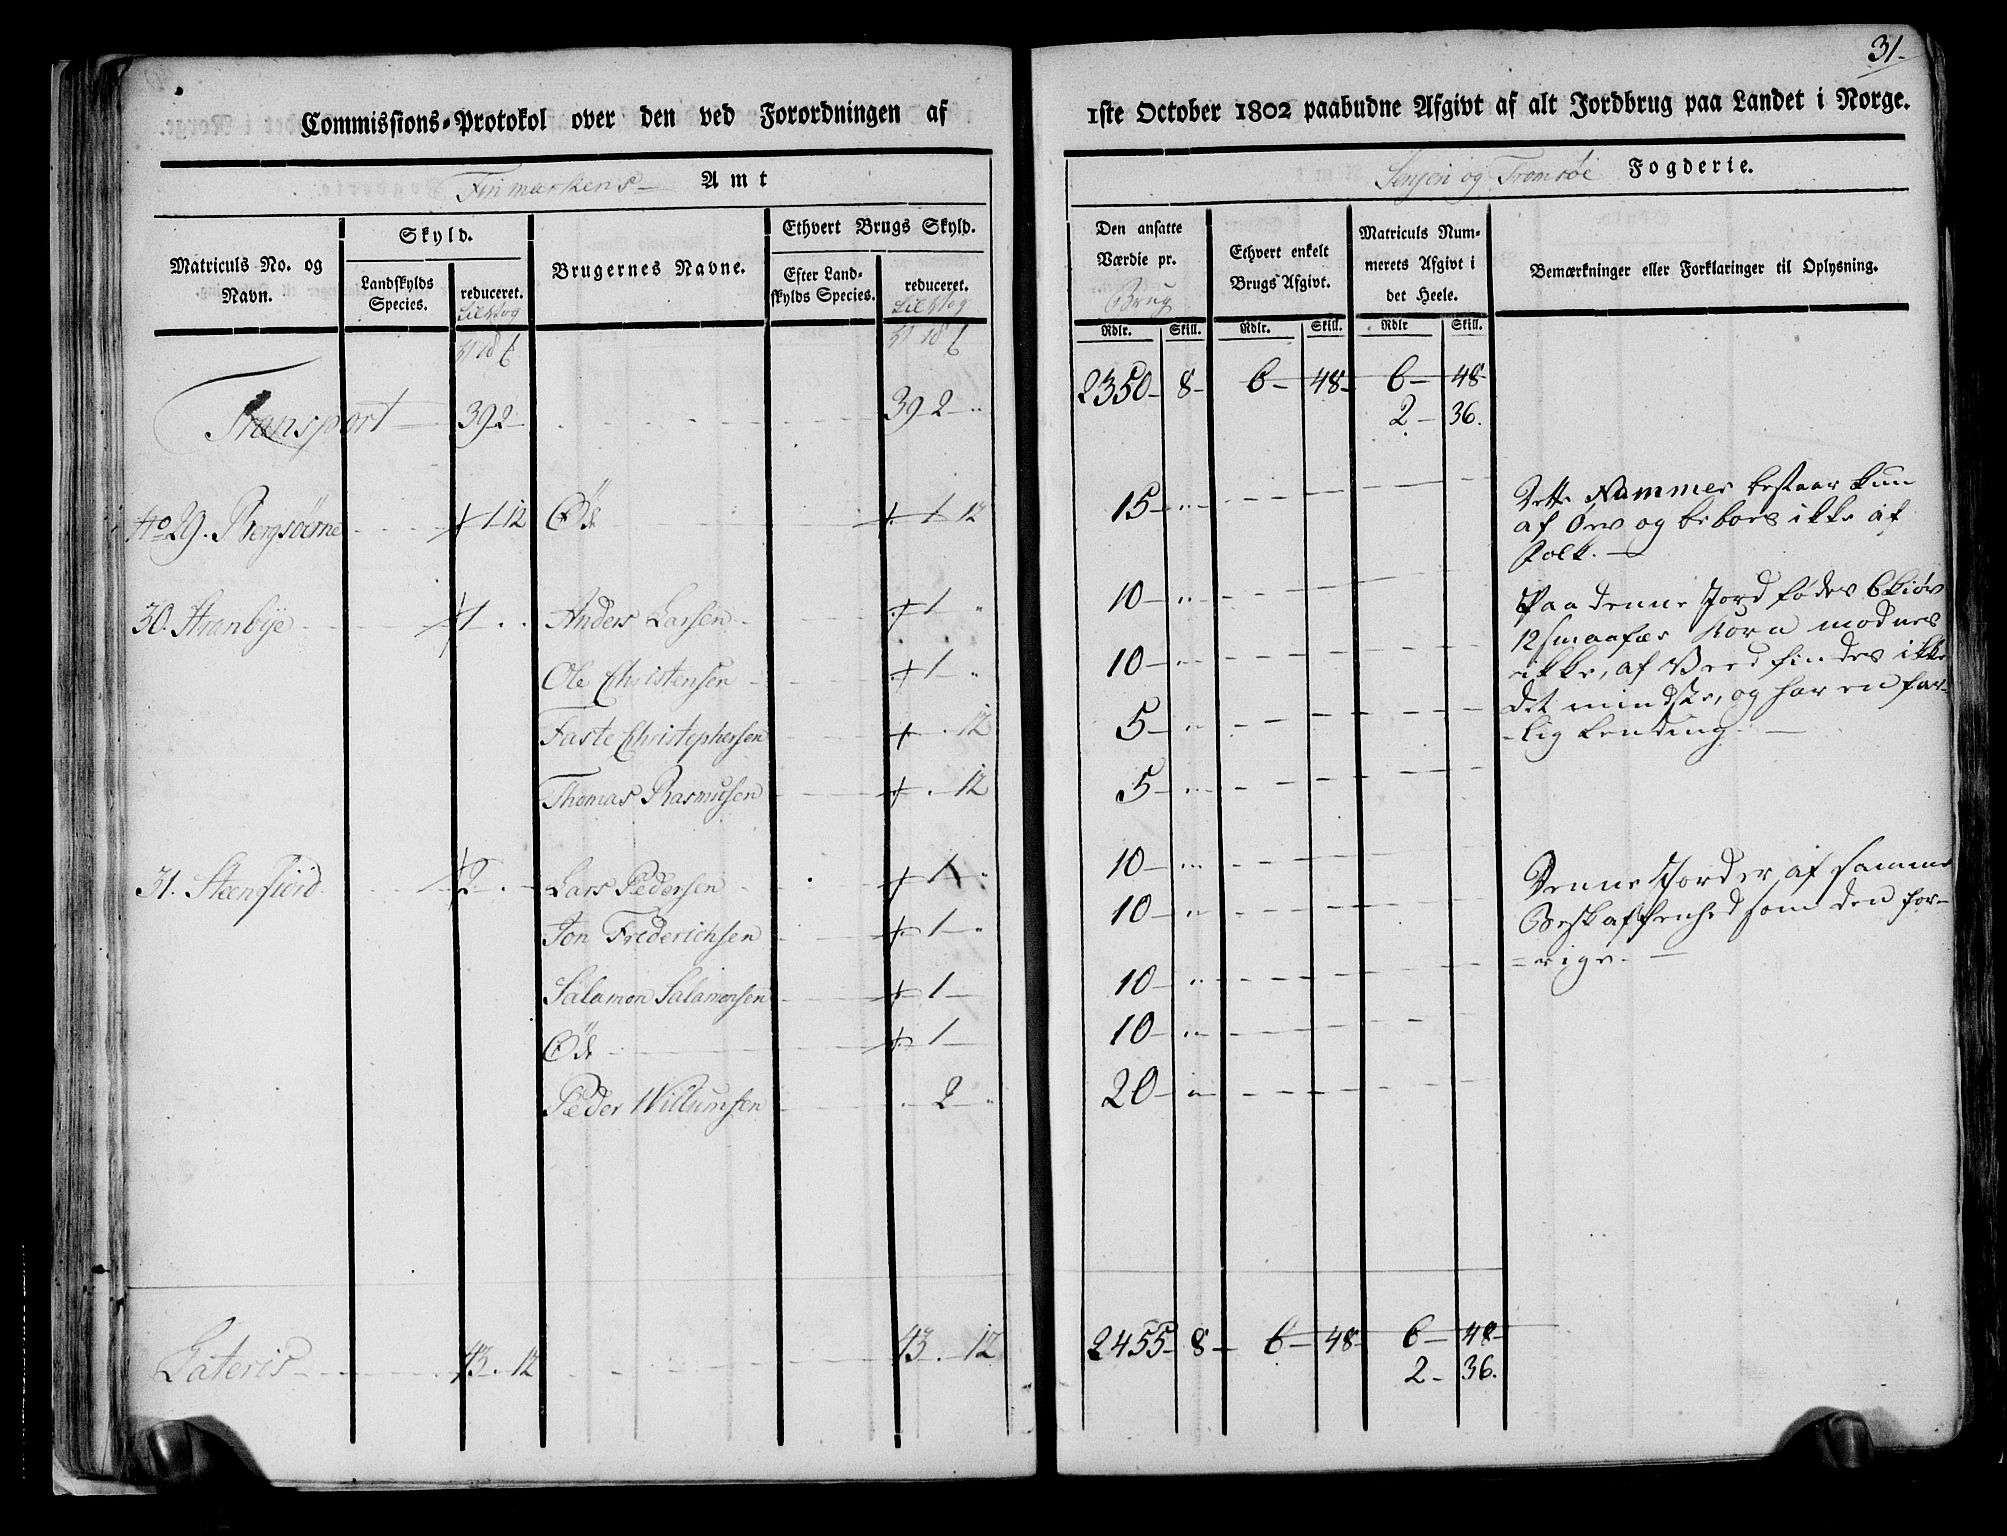 31.
Commissions-Protokol over den ved Forordningen af
1ste October 1802 paabudne Afgivt af alt Jordbrug paa Landet i Norge.
Finmarkens Amt
Senjen og Tromsøe Fogderie.
Matriculs No. og Navn.
Skyld.
Landskylds Species.
reduceret.
Brugernes Navne.
Ethvert Brugs Skyld.
Efter Landskylds Species.
reduceret.
Den ansatte Værdie pr. Brug
Ethvert enkelt Brugs Afgivt.
Matriculs Nummerets Afgivt i det Heele.
Bemærkninger eller Forklaringer til Oplysning.
Rdlr. Skill. Rdlr. Skill. Rdlr Skill.
Transport 39 2 39 2 " 2350 8 6 48 6 48
2 36.
No 29. Bergsöerne 1 12 Öde 1 12 15 "
Dette Nummer bestaar kun
af Øer og beboes ikke af
Folk.
30. Stranbye 1 . . Anders Larsen 1 " 10 "
Ole Christensen 1 " 10 "
Faste Christophersen . 12 5 "
Thomas Rasmusen . 12 5 "
Paa denne Jord fødes 6 kiør
12 smaafæ Korn modnes
ikke, af Veed findes ikke
det mindste, og har en far-
-lig Lending.
31. Steenfiord 2 . Lars Pedersen 1 " 10 "
Jon Frederichsen 1 " 10 "
Salamon Salamonsen 1 10 "
Öde 1 10 "
Peder Willumsen . 2 " 20 "
Denne Jord er af samme
Beskaffenhed som den for-
=rige.
Lateris 43 . 12 43 . 12 2455 8 6 48 6 48
2 36.